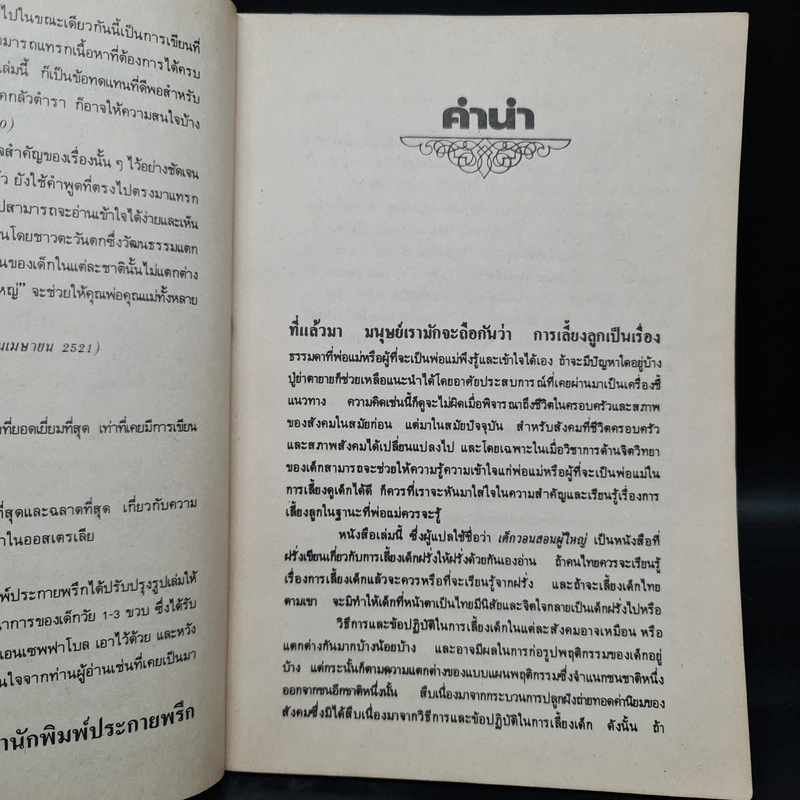 ไปในขณะเดียวกันนี้เป็นการเขียนที่
ามารถแทรกเนื้อหาที่ต้องการได้ครบ
ล่มนี้ ก็เป็นข้อทดแทนที่ดีพอสำหรับ
คกลัวตำรา ก็อาจให้ความสนใจบ้าง
0)
จสำคัญของเรื่องนั้น ๆ ไว้อย่างชัดเจน
ัว ยังใช้คำพูดที่ตรงไปตรงมาแทรก
ปสามารถจะอ่านเข้าใจได้ง่ายและเห็น
นโดยชาวตะวันตกซึ่งวัฒนธรรมแตก
นของเด็กในแต่ละชาตินั้นไม่แตกต่าง
หญ่” จะช่วยให้คุณพ่อคุณแม่ทั้งหลาย
นเมษายน 2521)
าที่ยอดเยี่ยมที่สุด เท่าที่เคยมีการเขียน
ที่สุดและฉลาดที่สุด เกี่ยวกับความ
าในออสเตรเลีย
พ์ประกายพรึกได้ปรับปรุงรูปเล่มให้
นาการของเด็กวัย 1-3 ขวบ ซึ่งได้รับ
เอนเซพฟาโบล เอาไว้ด้วย และหวัง
นใจจากท่านผู้อ่านเช่นที่เคยเป็นมา
านักพิมพ์ประกายพรึก
คำนำ
ที่แล้วมา มนุษย์เรามักจะถือกันว่า การเลี้ยงลูกเป็นเรื่อง
ธรรมดาที่พ่อแม่หรือผู้ที่จะเป็นพ่อแม่พึงรู้และเข้าใจได้เอง ถ้าจะมีปัญหาใดอยู่บ้าง
ปู่ย่าตายายก็ช่วยเหลือแนะนำได้โดยอาศัยประสบการณ์ที่เคยผ่านมาเป็นเครื่องชี้
แนวทาง ความคิดเช่นนี้ก็ดูจะไม่ผิดเมื่อพิจารณาถึงชีวิตในครอบครัวและสภาพ
ของสังคมในสมัยก่อน แต่มาในสมัยปัจจุบัน สำหรับสังคมที่ชีวิตครอบครัว
และสภาพสังคมได้เปลี่ยนแปลงไป และโดยเฉพาะในเมื่อวิชาการด้านจิตวิทยา
ของเด็กสามารถจะช่วยให้ความรู้ความเข้าใจแก่พ่อแม่หรือผู้ที่จะเป็นพ่อแม่ใน
การเลี้ยงดูเด็กได้ดี ก็ควรที่เราจะหันมาใส่ใจในความสำคัญและเรียนรู้เรื่องการ
เลี้ยงลูกในฐานะที่พ่อแม่ควรจะรู้
หนังสือเล่มนี้ ซึ่งผู้แปลใช้ชื่อว่า เด็กวอนสอนผู้ใหญ่ เป็นหนังสือที่
ฝรั่งเขียนเกี่ยวกับการเลี้ยงเด็กฝรั่งให้ฝรั่งด้วยกันเองอ่าน ถ้าคนไทยควรจะเรียนรู้
เรื่องการเลี้ยงเด็กแล้วจะควรหรือที่จะเรียนรู้จากฝรั่ง และถ้าจะเลี้ยงเด็กไทย
ตามเขา จะมิทำให้เด็กที่หน้าตาเป็นไทยมีนิสัยและจิตใจกลายเป็นเด็กฝรั่งไปหรือ
วิธีการและข้อปฏิบัติในการเลี้ยงเด็กในแต่ละสังคมอาจเหมือน หรือ
แตกต่างกันมากบ้างน้อยบ้าง และอาจมีผลในการก่อรูปพฤติกรรมของเด็กอยู่
บ้าง แต่กระนั้นก็ตามความแตกต่างของแบบแผนพฤติกรรมซึ่งจำแนกชนชาติหนึ่ง
ออกจากชนอีกชาติหนึ่งนั้น สืบเนื่องมาจากกระบวนการปลูกฝังถ่ายทอดค่านิยมของ
สังคมซึ่งมิได้สืบเนื่องมาจากวิธีการและข้อปฏิบัติในการเลี้ยงเด็ก ดังนั้น ถ้า